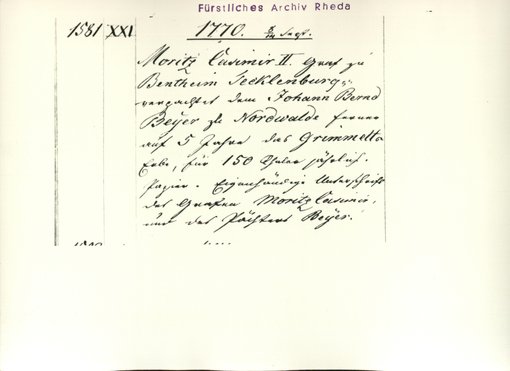 Fürstliches Archiv Rheda
1581 XXI. 1770. 8/14 Sept.
Moritz Casimir II. Graf zu
Bentheim Tecklenburg
verpachtet dem Johann Bernd
Beÿer zu Nordwalde ferner
auf 5 Jahre das Grimmelt
Erbe, für 150 Thaler jährlich.
Papier. Eigenhändige Unterschrift
des Grafen Moritz Casimir,
und des Pächters Beÿer.